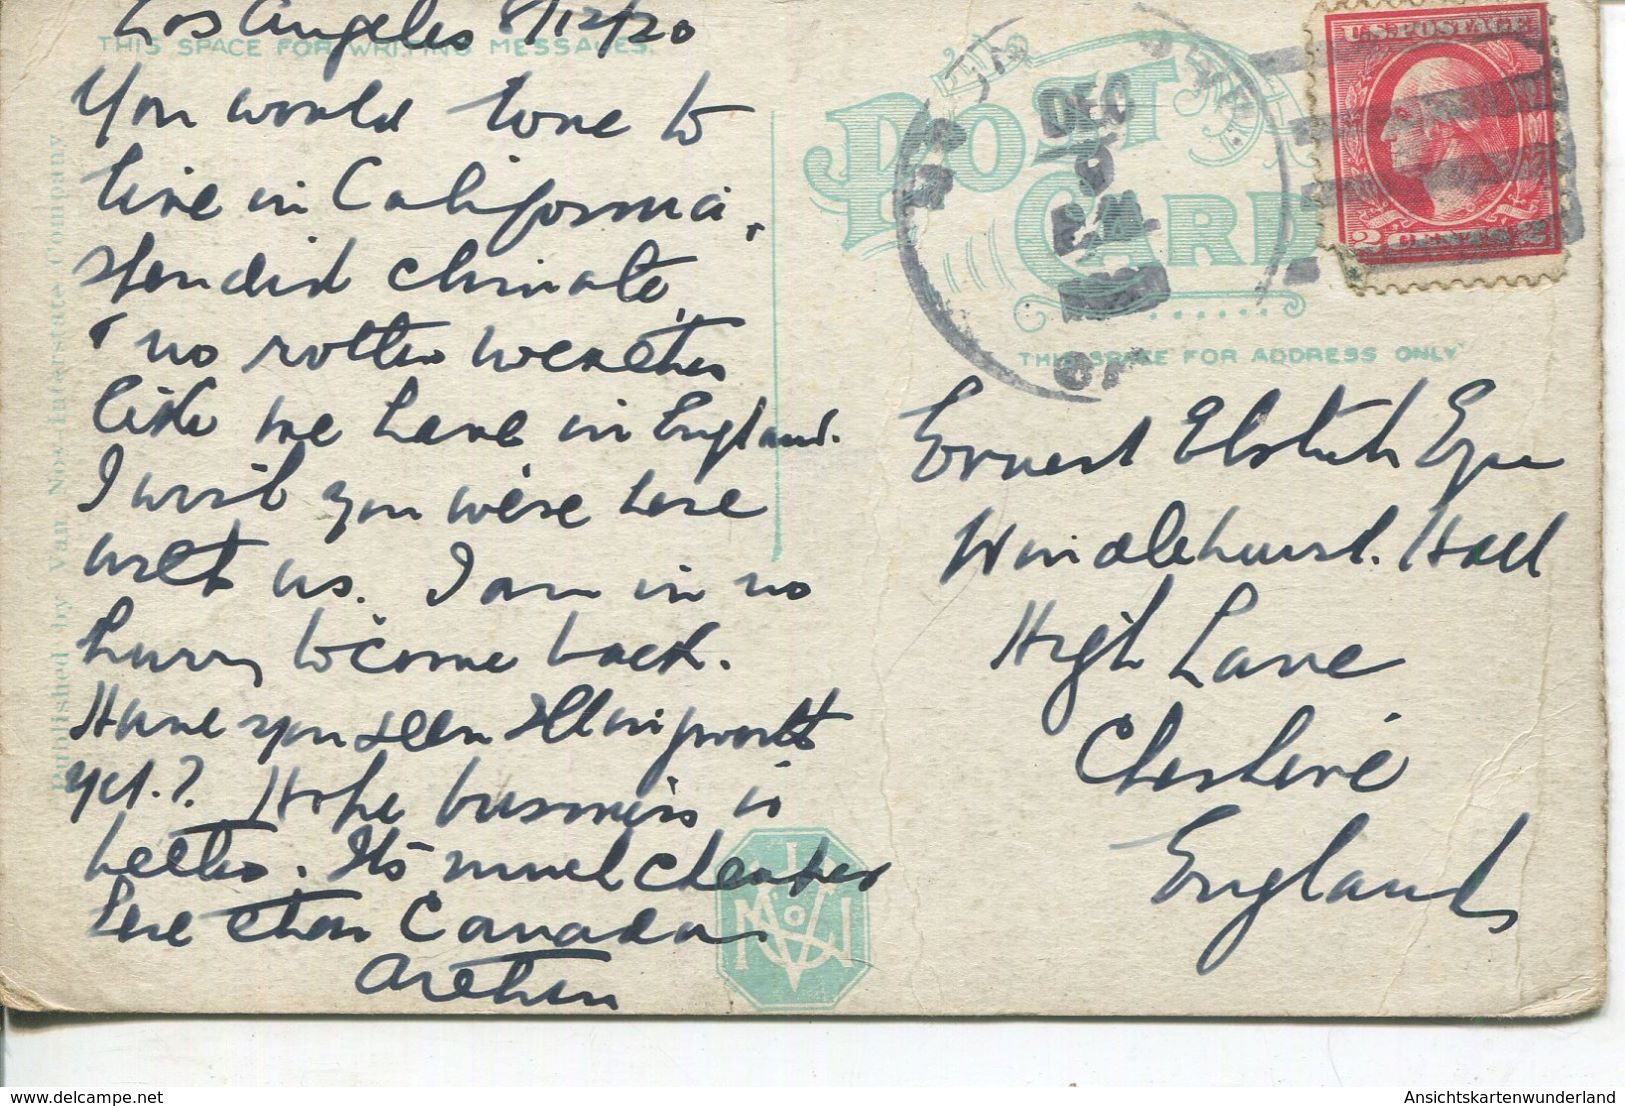 Los Angeles 8/12/20
THIS SPACE FOR WRITING MESSAGES.
You would love to
live in California,
splendid climate,
no rotten weather
like we have in England.
I wish you were here
with us. I am in no
hurry to come back.
Have you seen Illingworth
yet.? Hope business is
better. Its much cheaper
here than Canada
Arthur
Published by Van Noy-Interstate Company
POST CARD
THIS SPACE FOR ADDRESS ONLY
DEC
9
P.M.
U.S. POSTAGE
2 CENTS 2
Ernest Esqre
Windlehurst. Hall
High Lane
Cheshire
England
AnsichtskartenWunderland